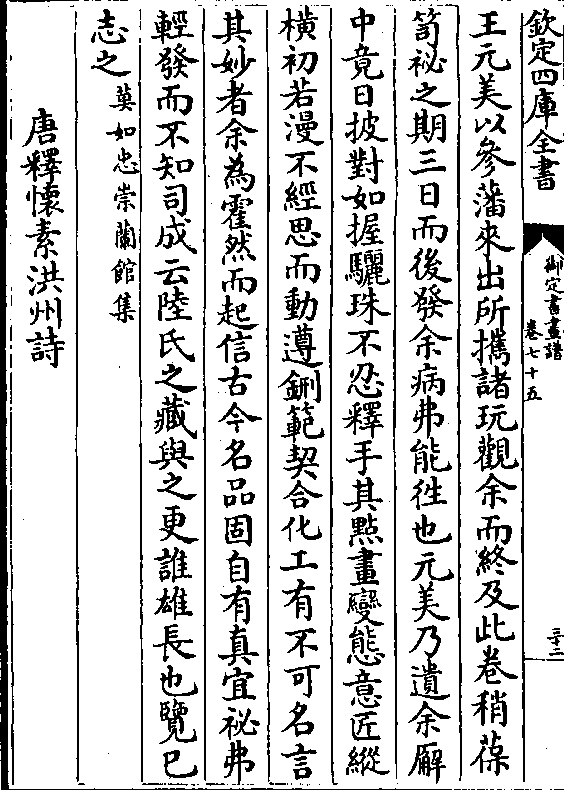 欽定四庫全書
御定書畫譜
卷七十五
三十二
王元美以參藩來出所攜諸玩觀余而終及此卷稍葆
笥祕之期三日而後發余病弗能徃也元美乃遺余廨
中竟日披對如握驪珠不忍釋手其點畫變態意匠縱
橫初若漫不經思而動遵鉶範契合化工有不可名言
其妙者余為霍然而起信古今名品固自有真宜祕弗
輕發而不知司成云陸氏之藏與之更誰雄長也覽已
志之莫如忠崇蘭館集
唐釋懷素洪州詩